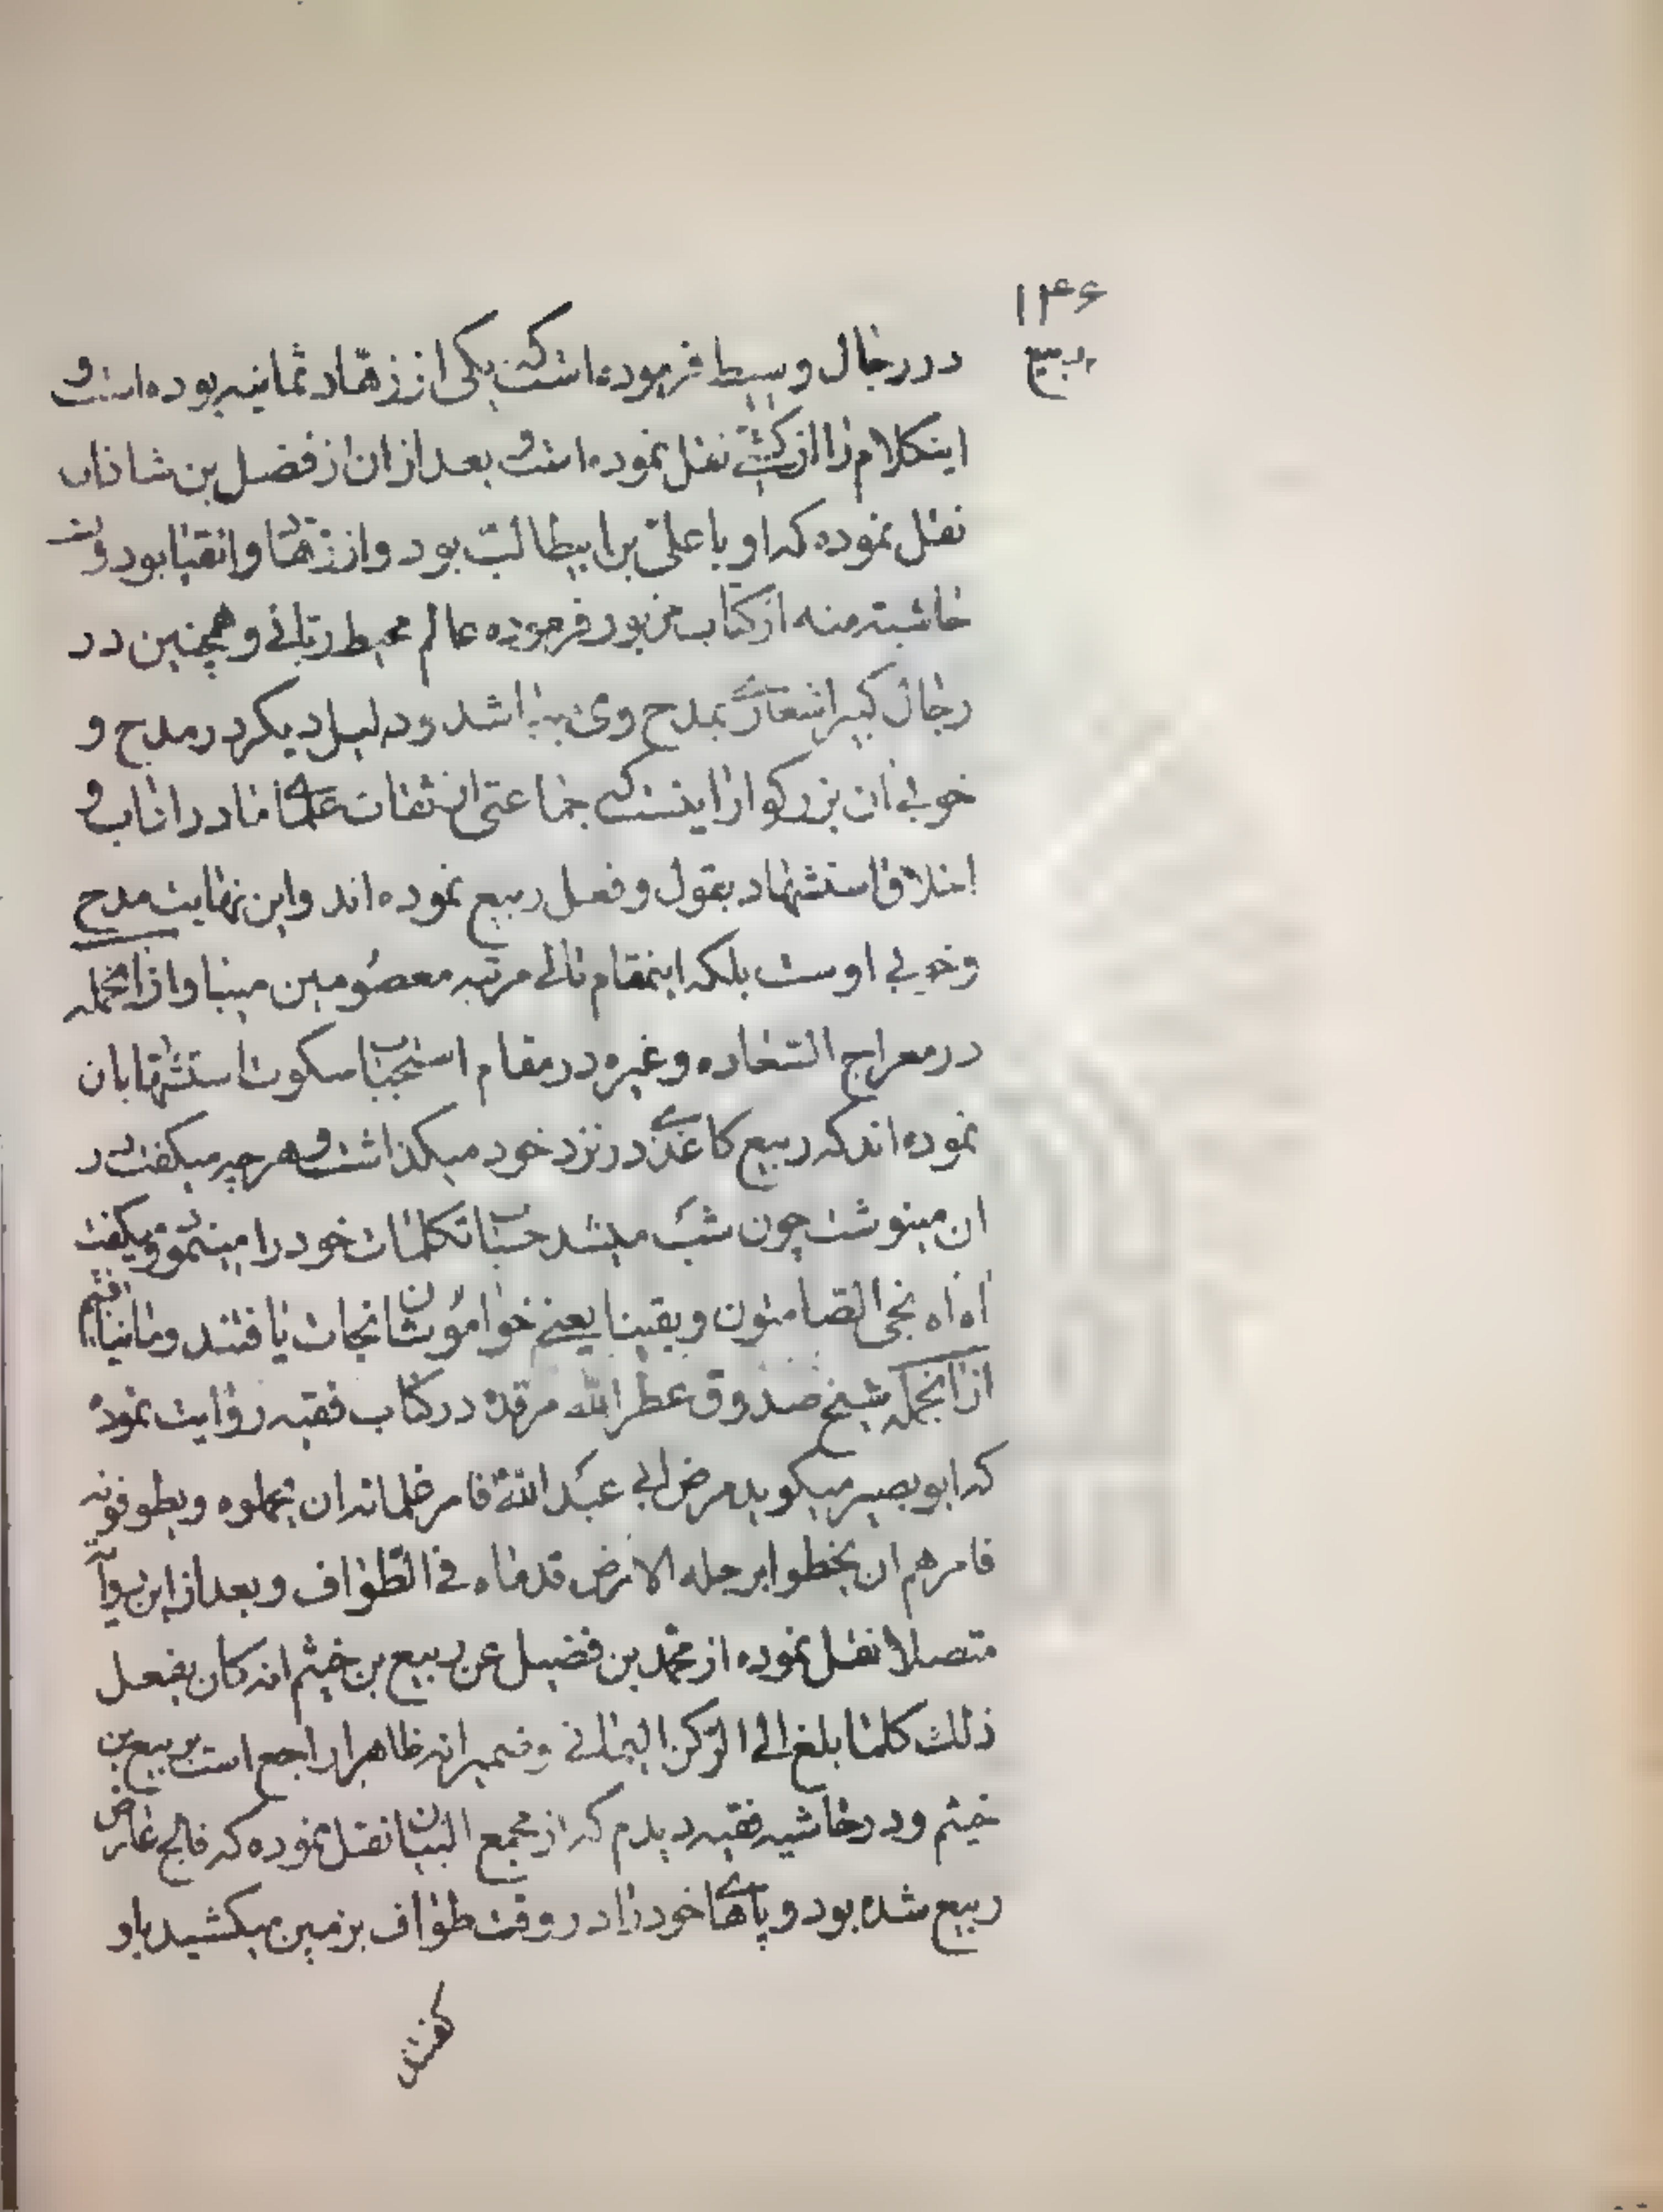 ۱۴۶
ربیع
در رجال وسیط فرموده است که یکی از زهاد ثمانیه بوده است و
اینکلام را از کشی نقل نموده است و بعد از ان از فضل بن شاذان
نقل نموده که او با علی بن ابیطالب بود و از زهاد و اتقیا بود و در
حاشیه منه از کتاب مزبور فرموده عالم محیط ربانی و همچنین در
رجال کبیر اشعاری بمدح وی میباشد و دلیل دیگر در مدح و
خوبی ان بزرگوار اینست که جماعتی از ثقات علمای ما در اداب و
اخلاق استشهاد بقول و فعل ربیع نموده اند و این نهایت مدح
و خوبی اوست بلکه اینمقام تالی مرتبه معصومین میباشد و از انجمله
در معراج السعاده و غیره در مقام استحباب سکوت استشهاد بان
نموده اند که ربیع کاغذی در نزد خود میگذاشت و هر چه میگفت در
ان مینوشت چون شب میشد حساب تکلمات خود را مینمود و میگفت
اه اه نجی الصامتون و بقینا یعنی خواموشان نجات یافتند و ما نیافتیم
از انجمله شیخ صدوق عطر الله مرقده در کتاب فقیه روایت نموده
که ابو بصیر میگوید مرض ابی عبد الله فامر غلمانه ان یحملوه و یطوفونه
فامرهم ان یخطوا برجله الارض قدماه فی الطواف و بعد از این روایت
متصلا نقل نموده از محمد بن فضیل عن ربیع بن خیثم انه کان یفعل
ذلک کلما بلغ الی الرکن الیمانی و ضمیر انه ظاهرا راجع است بربیع بن
خیثم و در حاشیه فقیه دیدم که از مجمع البیان نقل نموده که فالج عارض
ربیع شده بود و پاهای خود را در وقت طواف بزمین میکشید باو
گفتند